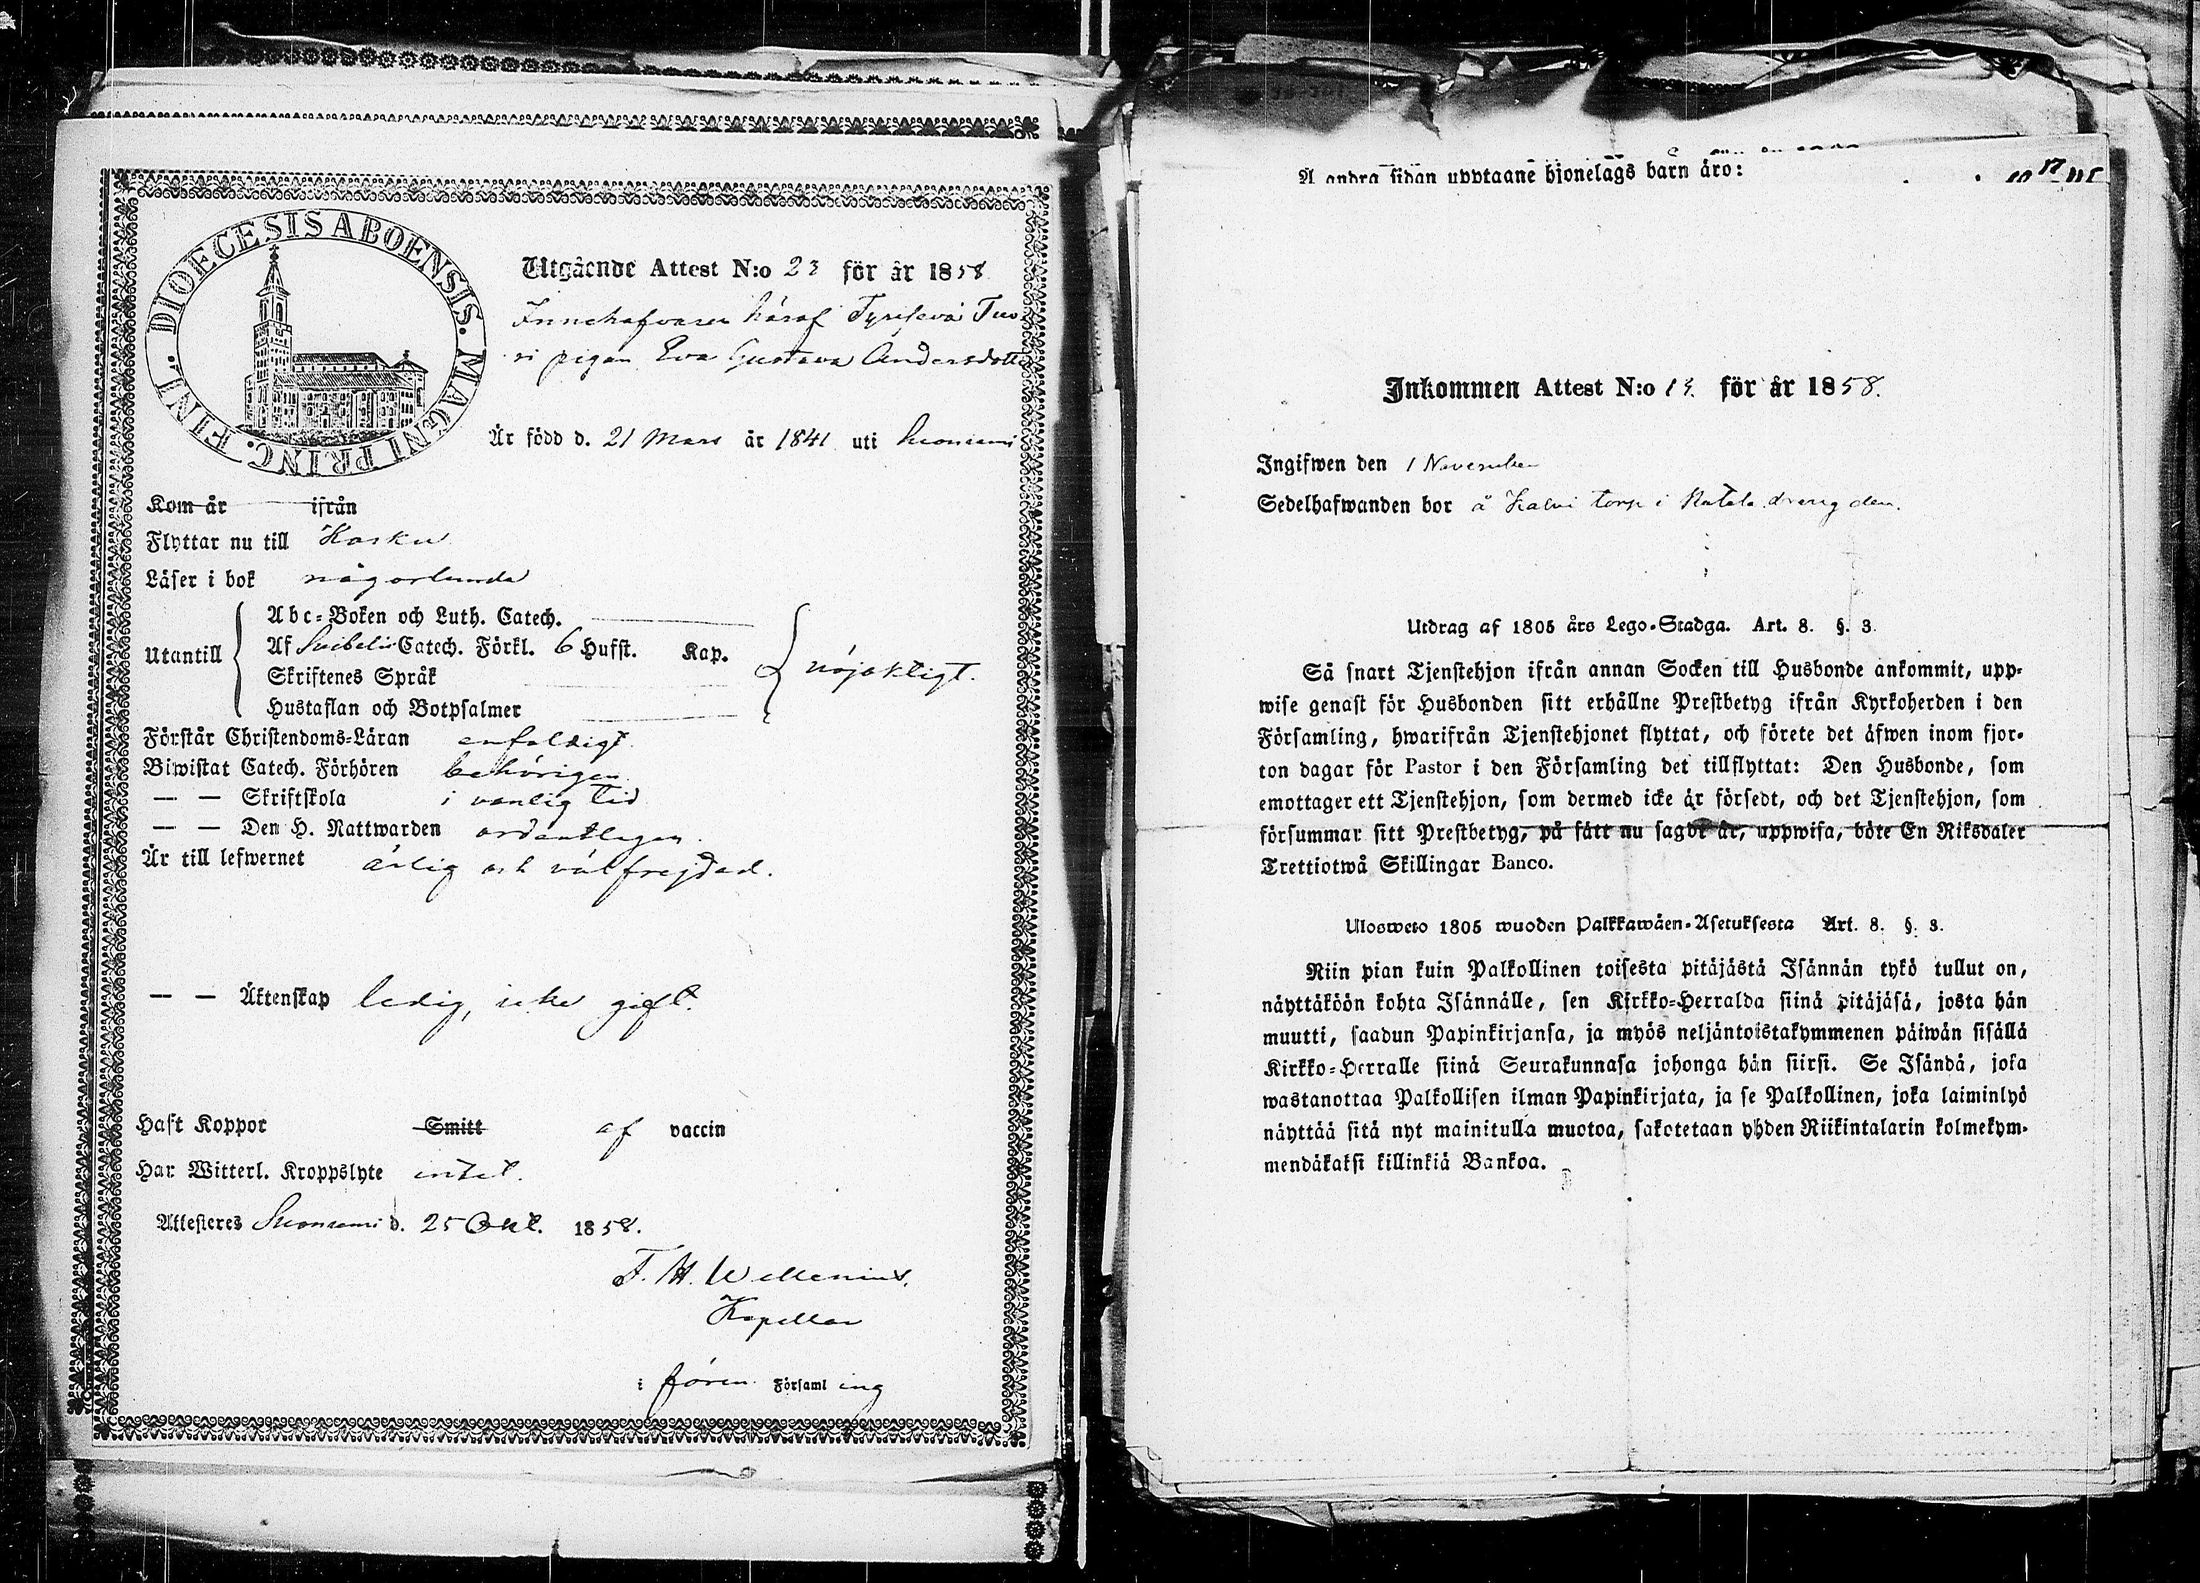 DIOECESIS ABOENSIS. MAGNI PRINC. FINL.
Utgående Attest N:o 23 för år 1858
Innehafvaren häraf Tyrisevä Tuo
ri pigan Eva Gustava Andersdotte
Är född d. 21 Mars år 1841 uti Suoniemi
Kom år ifrån
Flyttar nu till Karku
Läser i bok någorlunda
Utantill
Abc-Boken och Luth. Catech.
Af Svibelii Catech. Förkl. 6 Hufst. Kap.
Skriftenes Språk
Hustaflan och Botpsalmer
nöjaktigt.
Förstår Christendoms-Läran enfaldigt
Biwistat Catech. Förhören behörigen
— — Skriftskola i vanlig tid
— — Den H. Nattwarden ordentligen.
Är till lefwernet ärlig och välfrejdad.
— — Äktenskap ledig, icke gift.
Haft Koppor Smitt af vaccin
Har Witterl. Kroppslyte intet.
Attesteres Suoniemi d. 25 Okt. 1858.
F. H. Wellenius.
Kapellan
i fören Församl ing
A andra sidan upptagne hjonelags barn äro:
Inkommen Attest N:o 13. för år 1858.
Ingifwen den 1 November
Sedelhafwanden bor å Kalvi torp i
Utdrag af 1805 års Lego-Stadga. Art. 8. §. 3.
Så snart Tjenstehjon ifrån annan Socken till Husbonde ankommit, upp-
wise genast för Husbonden sitt erhållne Prestbetyg ifrån Kyrkoherden i den
Församling, hwarifrån Tjenstehjonet flyttat, och förete det äfwen inom fjor-
ton dagar för Pastor i den Församling det tillflyttat: Den Husbonde, som
emottager ett Tjenstehjon, som dermed icke är försedt, och det Tjenstehjon, som
försummar sitt Prestbetyg, på sätt nu sagdt är, uppwisa, böte En Riksdaler
Trettiotwå Skillingar Banco.
Ulosweto 1805 wuoden Palkkawäen-Asetuksesta Art. 8. §. 3.
Niin pian kuin Palkollinen toisesta pitäjästä Isännän tykö tullut on,
näyttäköön kohta Isännälle, sen Kirkko-Herralda siinä pitäjäsä, josta hän
muutti, saadun Papinkirjansa, ja myös neljäntoistakymmenen päiwän sisällä
Kirkko-Herralle siinä Seurakunnasa johonga hän siirsi. Se Isändä, joka
wastanottaa Palkollisen ilman Papinkirjata, ja se Palkollinen, joka laiminlyö
näyttää sitä nyt mainitulla muotoa, sakotetaan yhden Riikintalarin kolmekym-
mendäkaksi killinkiä Bankoa.